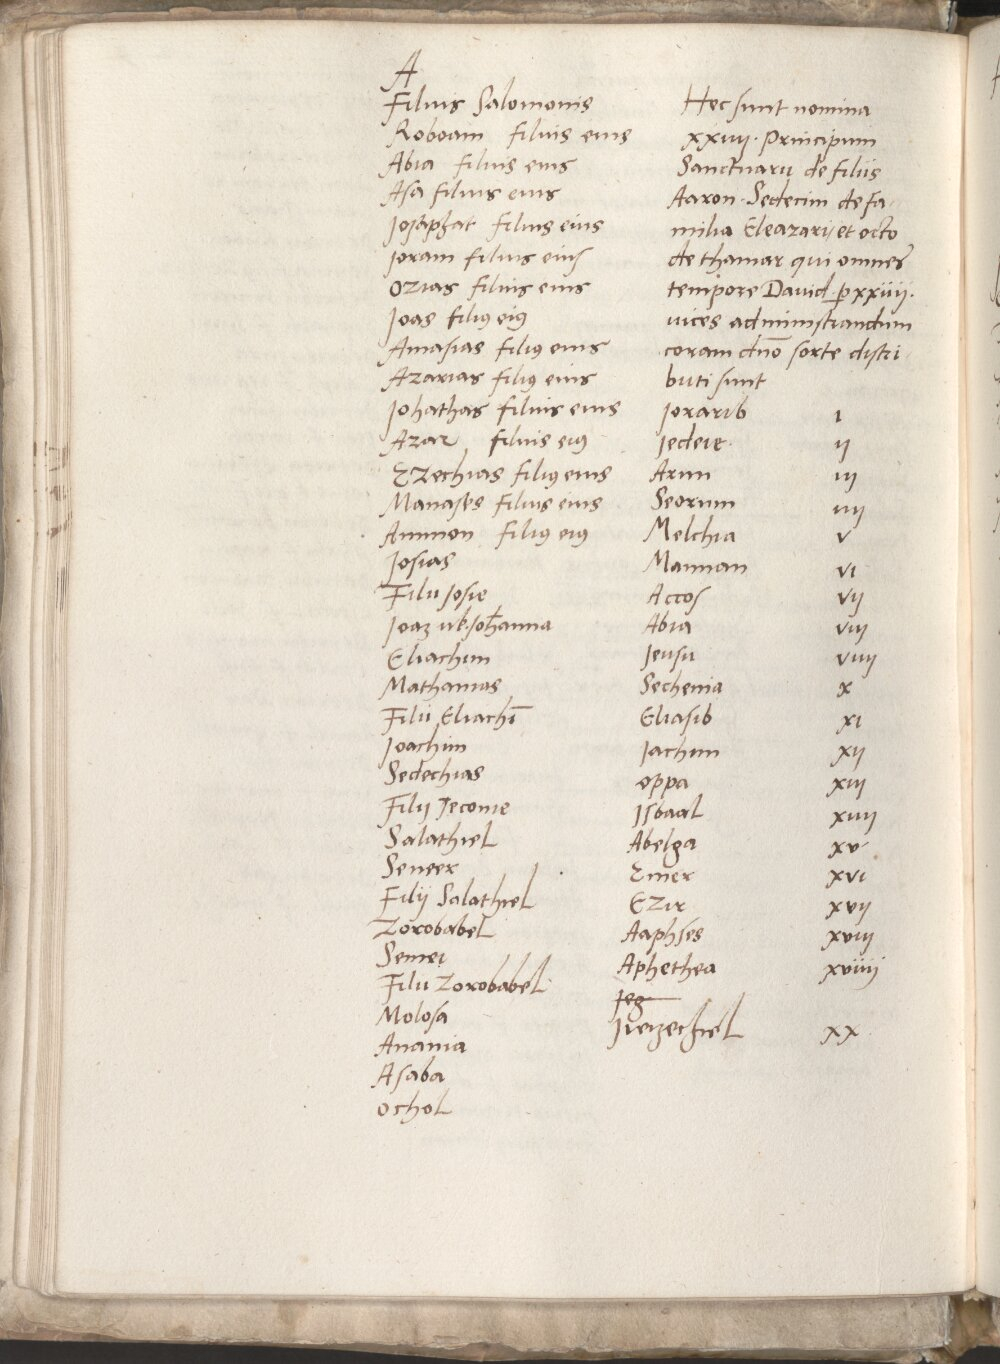 A
Filius Salomonis
Roboam filius eius
Abia filius eius
Asa filius eius
Josaphat filius eius
Joram filius eius
Ozias filius eius
Joas filiꝯ eiꝯ
Amasias filiꝯ eius
Azarias filiꝯ eius
Johathas filius eius
Azar filius eiꝯ
Ezechias filiꝯ eius
Manases filius eius
Ammon filiꝯ eiꝯ
Josias
Filii Josie
Joaz Johanna
Eliachim
Mathanias
Filii Eliachī
Joachim
Sedechias
Filij Jeconie
Salathiel
Seneer
Filij Salathiel
Zorobabel
Semei
Filii Zorobabel
Molosa
Anania
Asaba
Ochol
Hec sunt nomina
xxiiij. Principum
Sanctuarii de filiis
Aaron. Sedecim de fa-
milia Eleazari et octo
de thamar qui omnes
tempore David p xxiiij.
vices administrandum
coram dño sorte distri-
buti sunt
Jorarib i
Jedeie. ij
Arim iij
Seorum iiij
Melchia v
Maiman vi
Accos vij
Abia viij
Jeusu viiij
Sechenia x
Eliasib xi
Jachim xij
Oppa xiij
Jsbaal xiiij
Abelga xv
Emer xvi
Ezir xvij
Aaphses xviij
Aphethea xviiij
Jeg
Jiezechiel xx